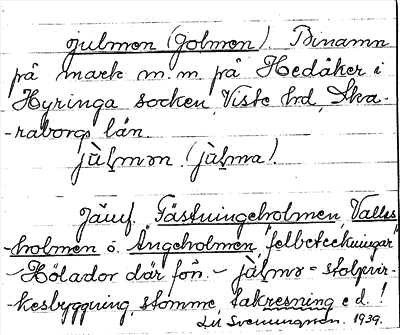 Julmen (Jolmen). Binamn
på mark m.m på Hedåker i
Hyringa socken, Viste hd, Ska-
-raborgs län.
jùl̠mən (jùl̠ma).
Jämf. Fästningeholmen, Valles-
-holmen o. Ängeholmen, "felbeteckningar"
- Hölador där fôr. - jùl̠mə = stolpvir-
-kesbyggning, stomme, takresning e d. !
Svenningson. 1939.